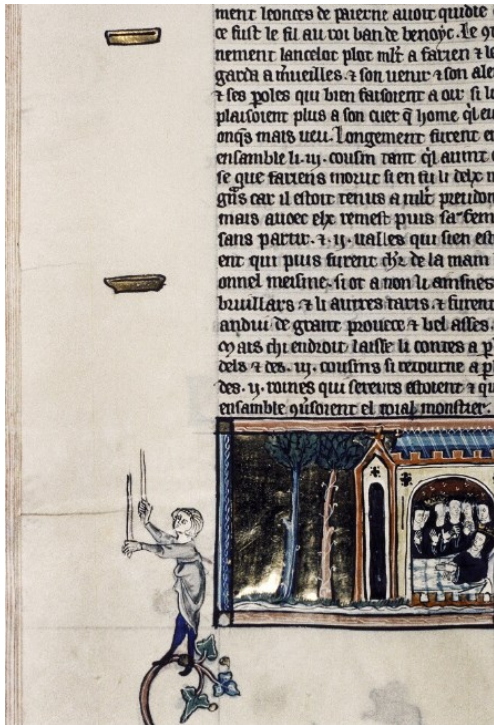 ment leonces de paierne auoit quidie
ce fust le fil au roi ban de benoyc. Le
nement lancelot plot ml't a farien ⁊
garda a m'ueilles. ⁊ son uenir ⁊ son aler
⁊ ses poles qui bien faisoient a oir si
plaisoient plus a son cuer q̄ home
onq̄s mais ueu. Longement furent
ensamble li .iij. cousin tant q̄l auint
se que fariens morut si en fu li delx
gñs car il estoit tenus a ml't preudom
mais auoec elx remest puis sa fem
sans partir. ⁊ .ij. ualles qui sien est
ent qui puis furent ch'r de la main
onnel meisme. si ot a non li ainsnes
bruillars. ⁊ li autres taris. ⁊ furent
andui de grant prouece ⁊ bel asses.
Mais chi endroit laisse li contes a
dels ⁊ des .iij. cousins si retorne a
des .ij. roines qui sereurs estoient ⁊
ensamble ꝯuersoient el roial monstier.